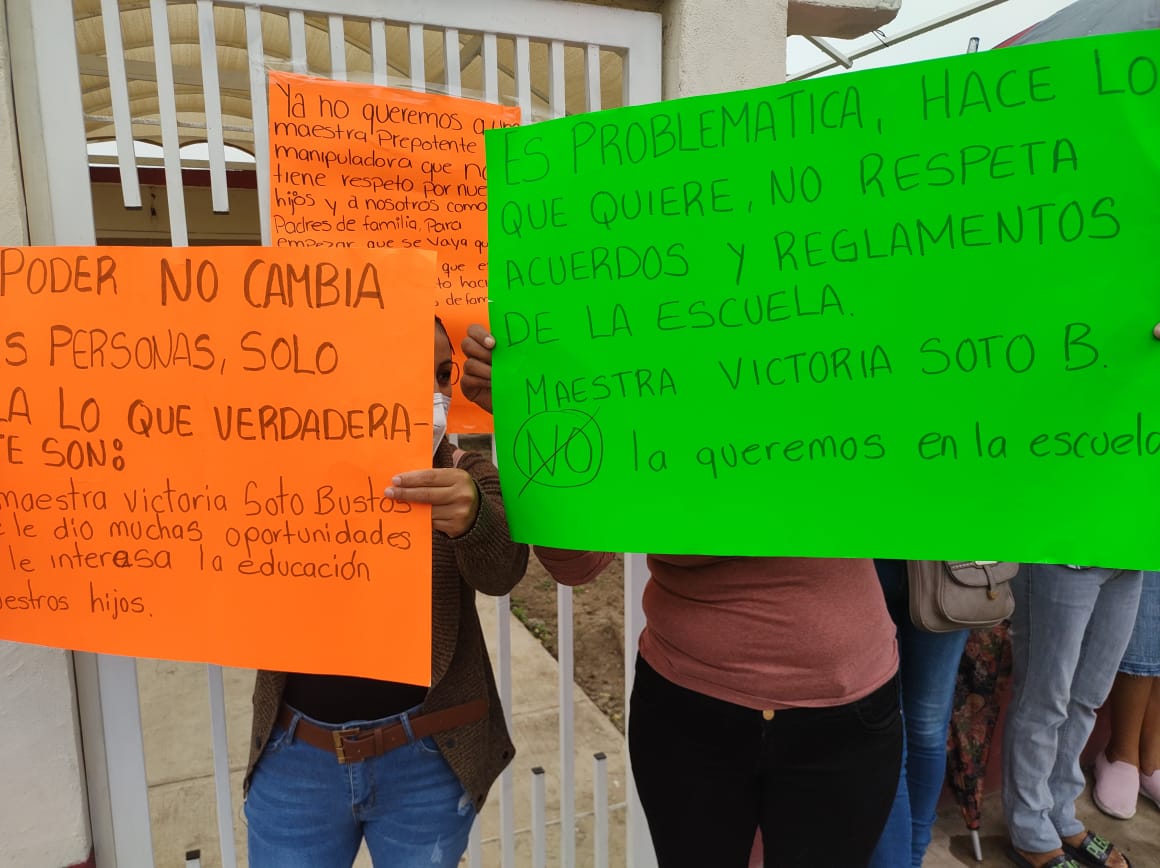 Ya no queremos a
maestra Prepotente
manipuladora que
tiene respeto por
hijos y a nosotros como
Padres de familia, Para
empezar que se vaya
que
de fam
PODER NO CAMBIA
S PERSONAS, SOLO
LA LO QUE VERDADERA-
TE SON:
maestra victoria Soto Bustos
le dio muchas oportunidades
le interesa la educación
uestros hijos.
ES PROBLEMATICA, HACE LO
QUE QUIERE, NO RESPETA
ACUERDOS Y REGLAMENTOS
DE LA ESCUELA.
MAESTRA VICTORIA SOTO B.
NO la queremos en la escuela